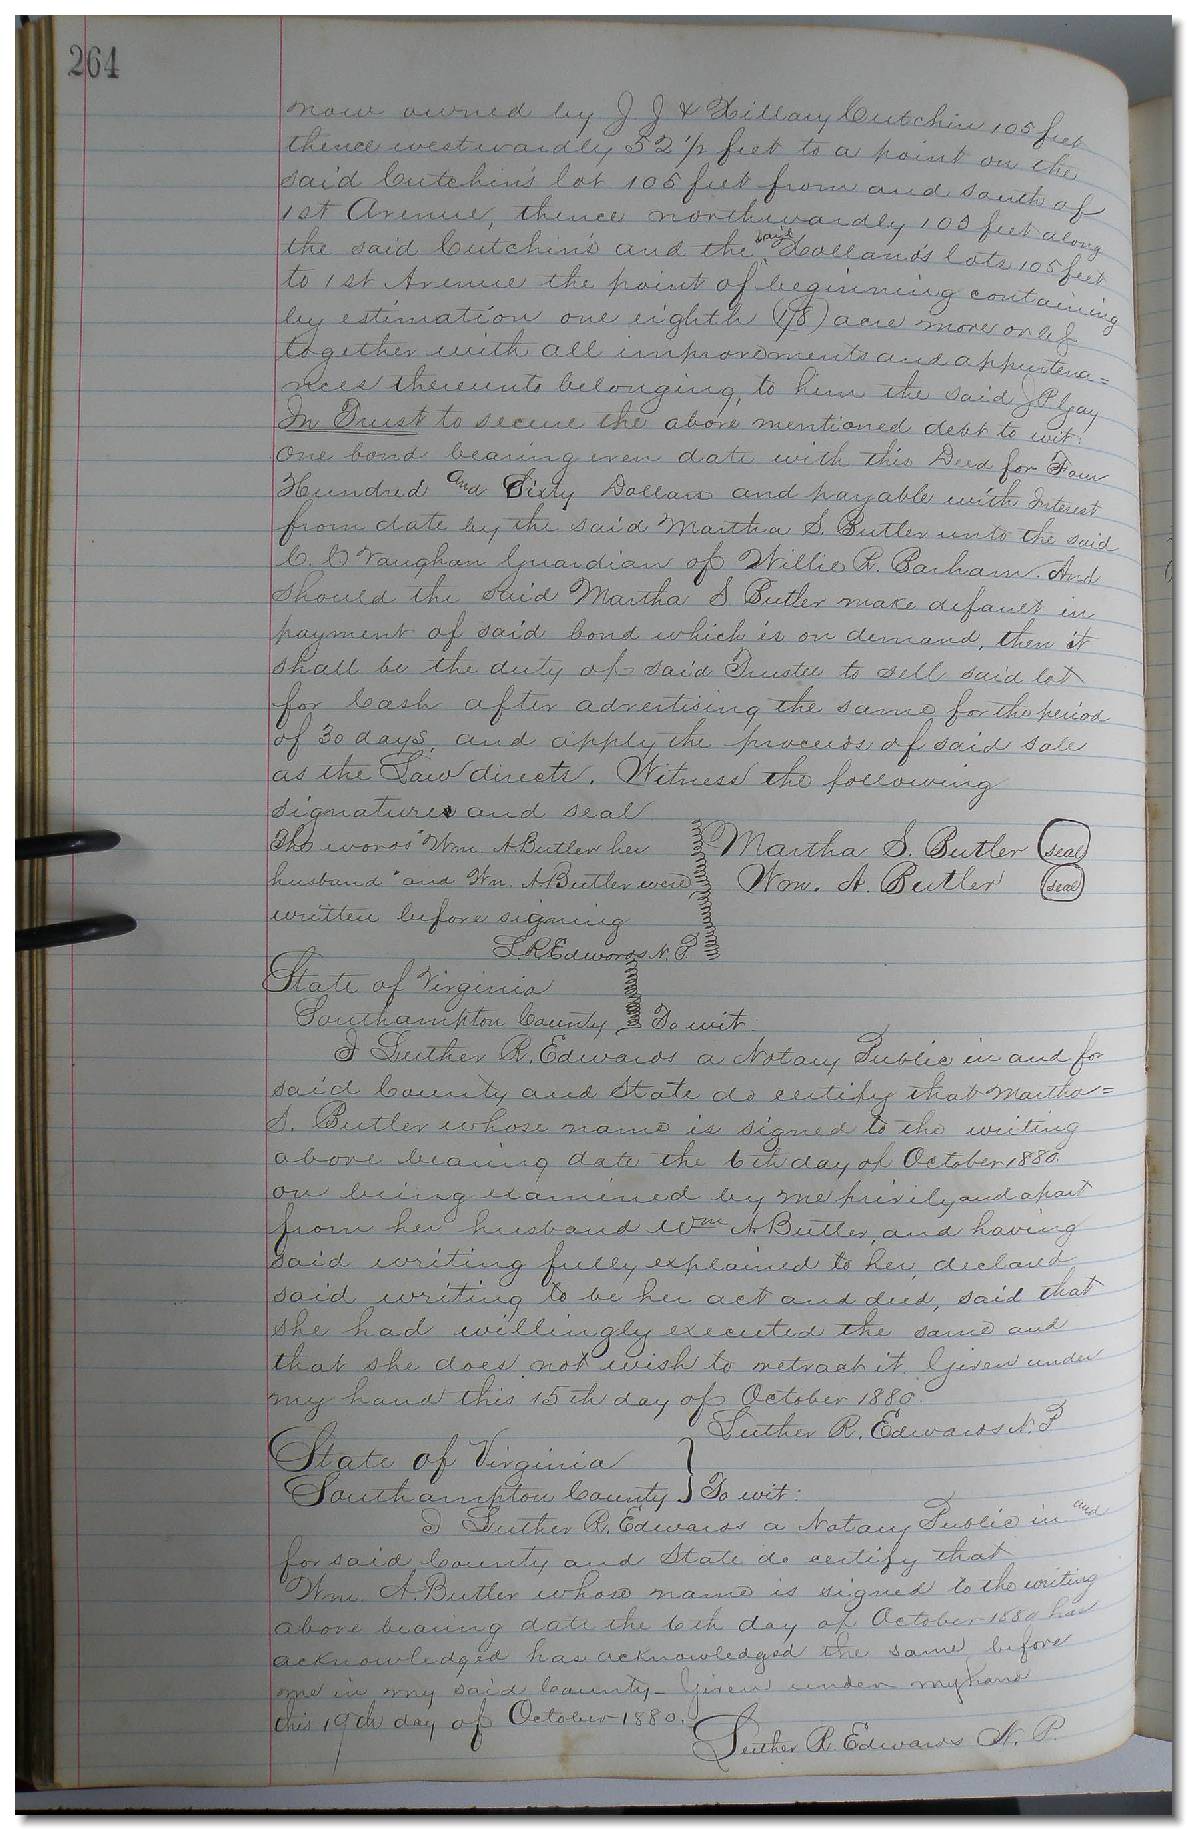 264
now owned by J J & Hillary Cutchin 105 feet
thence westwardly 52 1/2 feet to a point on the
said Cutchin's lot 105 feet from and south of
1st Avenue, thence northwardly 105 feet along
the said Cutchin's and the said Holland's lots 105 feet
to 1st Avenue the point of beginning containing
by estimation one eighth (1/8) acre more or less
together with all improvements and appurtena=
nces thereunto belonging, to him the said J P Gay
In Trust to secure the above mentioned debt to wit:
One bond bearing even date with this Deed for Four
Hundred and Sixty Dollars and payable with Interest
from date by the said Martha S. Butler unto the said
C. C Vaughan Guardian of Willie R. Barham. And
should the said Martha S. Butler make default in
payment of said bond which is on demand, then it
shall be the duty of said Trustee to sell said lot
for Cash after advertising the same for the period
of 30 days, and apply the proceeds of said sale
as the Law directs. Witness the following
signatures and seal
The words "Wm A Butler her
husband" and Wm. A Butler were
written before signing
L. R Edwards N. P.
Martha S. Butler seal
Wm. A. Butler seal
State of Virginia
Southampton County To wit
I Luther R. Edwards a Notary Public in and for
said County and State do certify that Martha=
S. Butler whose name is signed to the writing
above bearing date the 6th day of October 1880
on being examined by me privily and apart
from her husband Wm A Butler, and having
said writing fully explained to her, declared
said writing to be her act and deed, said that
she had willingly executed the same and
that she does not wish to retract it. Given under
my hand this 15th day of October 1880.
Luther R. Edwards N. P
State of Virginia
Southampton County } To wit:
I Luther R. Edwards a Notary Public in and
for said County and State do certify that
Wm. A. Butler whose name is signed to the writing
above bearing date the 6th day of October 1880 has
acknowledged has acknowledged the same before
me in my said County - Given under my hand
this 19th day of October 1880.
Luther R. Edwards N. P.